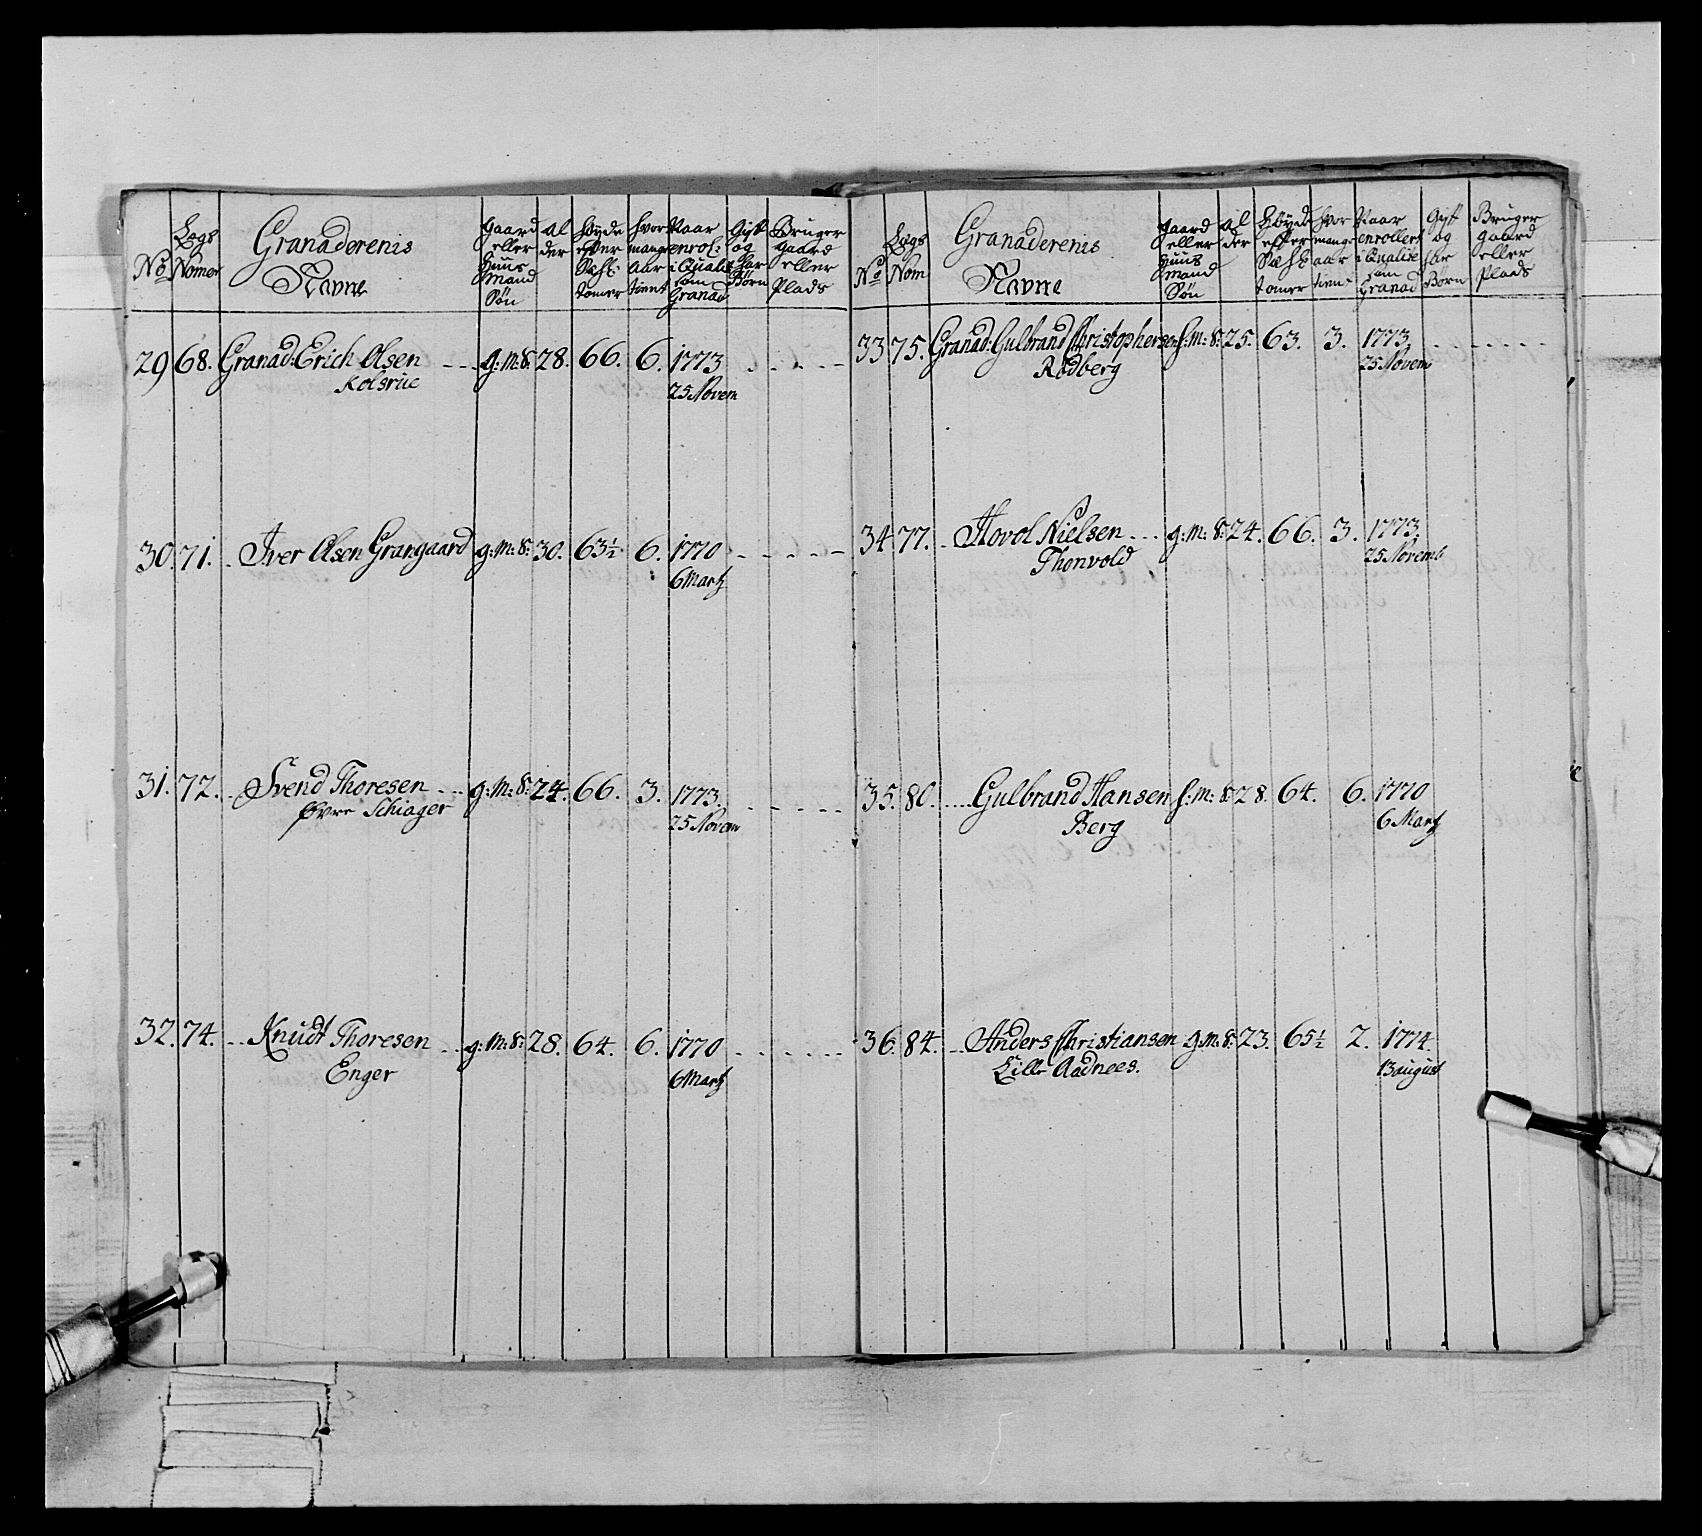 No Lægs Nomer Granaderenis Navne Gaard eller Huus Mand Søn Al der Høyde efter Sæhs tomer Hvor mange Aar tient Naar enrol: i Qualit som Granad Gift og har Børn Bruger gaard eller Plads
29 68. Granad: Erich Olsen g: M: S: 28. 66. 6. 1773
Kolsrue 25 Novem
30. 71. Iver Olsen Grangaard g: M: S: 30. 63½ 6. 1770
6 Martz
31. 72. Svend Thoresen g: M: S: 24. 66. 3. 1773.
Øvre Schiager 25 Novem
32. 74. Knudt Thoresen g: M: S: 28. 64. 6. 1770
Enger 6 Martz
No Lægs Nom Granaderenis Navne Gaard eller Huus Mand Søn Al der Høyde efter Sæhs tomer Hvor mange aar tien Naar enrollert i Qualite som Granad Gift og har Børn Bruger gaard eller Plads
33 75. Granad: Gulbrand Christophersen H: m: S: 25. 63. 3. 1773.
Rødberg 25 Novem
34 77. Hovol Nielsen g: M: S: 24. 66. 3. 1773.
Thonvold 25 Novemb
35. 80. Gulbrand Hansen H: m: S: 28. 64. 6. 1770
Berg 6 Martz
36. 84. Anders Christiansen g: M: S: 23. 65½ 2. 1774.
Lille Aadnees. 13 august